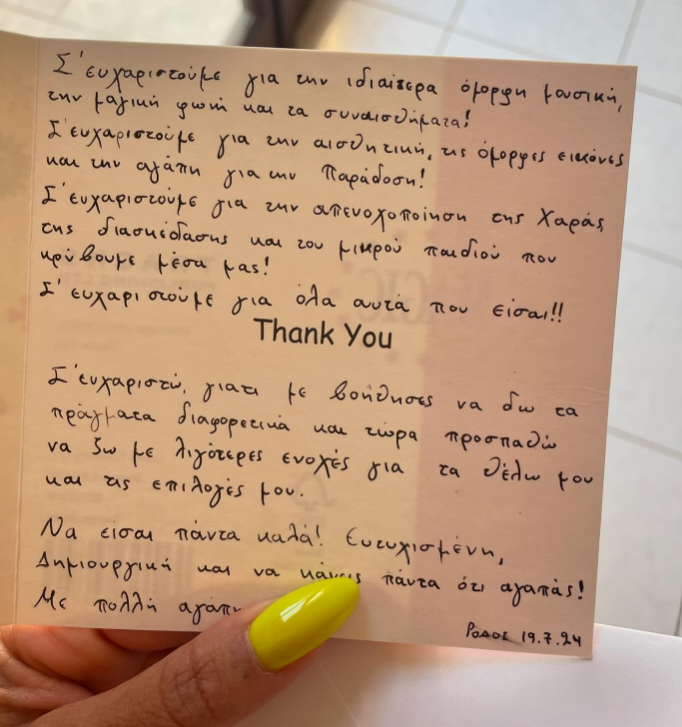 Σ' ευχαριστούμε για την ιδιαίτερα όμορφη μουσική,
την μαγική φωνή και τα συναισθήματα!
Σ' ευχαριστούμε για την αισθητική, τις όμορφες εικόνες
και την αγάπη για την Παράδοση!
Σ' ευχαριστούμε για την απενοχοποίηση της Χαράς
της διασκέδασης και του μικρού παιδιού που
κρύβουμε μέσα μας!
Σ' ευχαριστούμε για όλα αυτά που είσαι!!
Thank You
Σ' ευχαριστώ, γιατι με βοήθησες να δω τα
πράγματα διαφορετικά και τώρα προσπαθώ
να ζω με λιγότερες ενοχές για τα θέλω μου
και τις επιλογές μου.
Να είσαι πάντα καλά! Ευτυχισμένη,
Δημιουργική και να κάνεις πάντα ότι αγαπάς!
Με πολλή αγάπη
Ρόδος 19.7.24